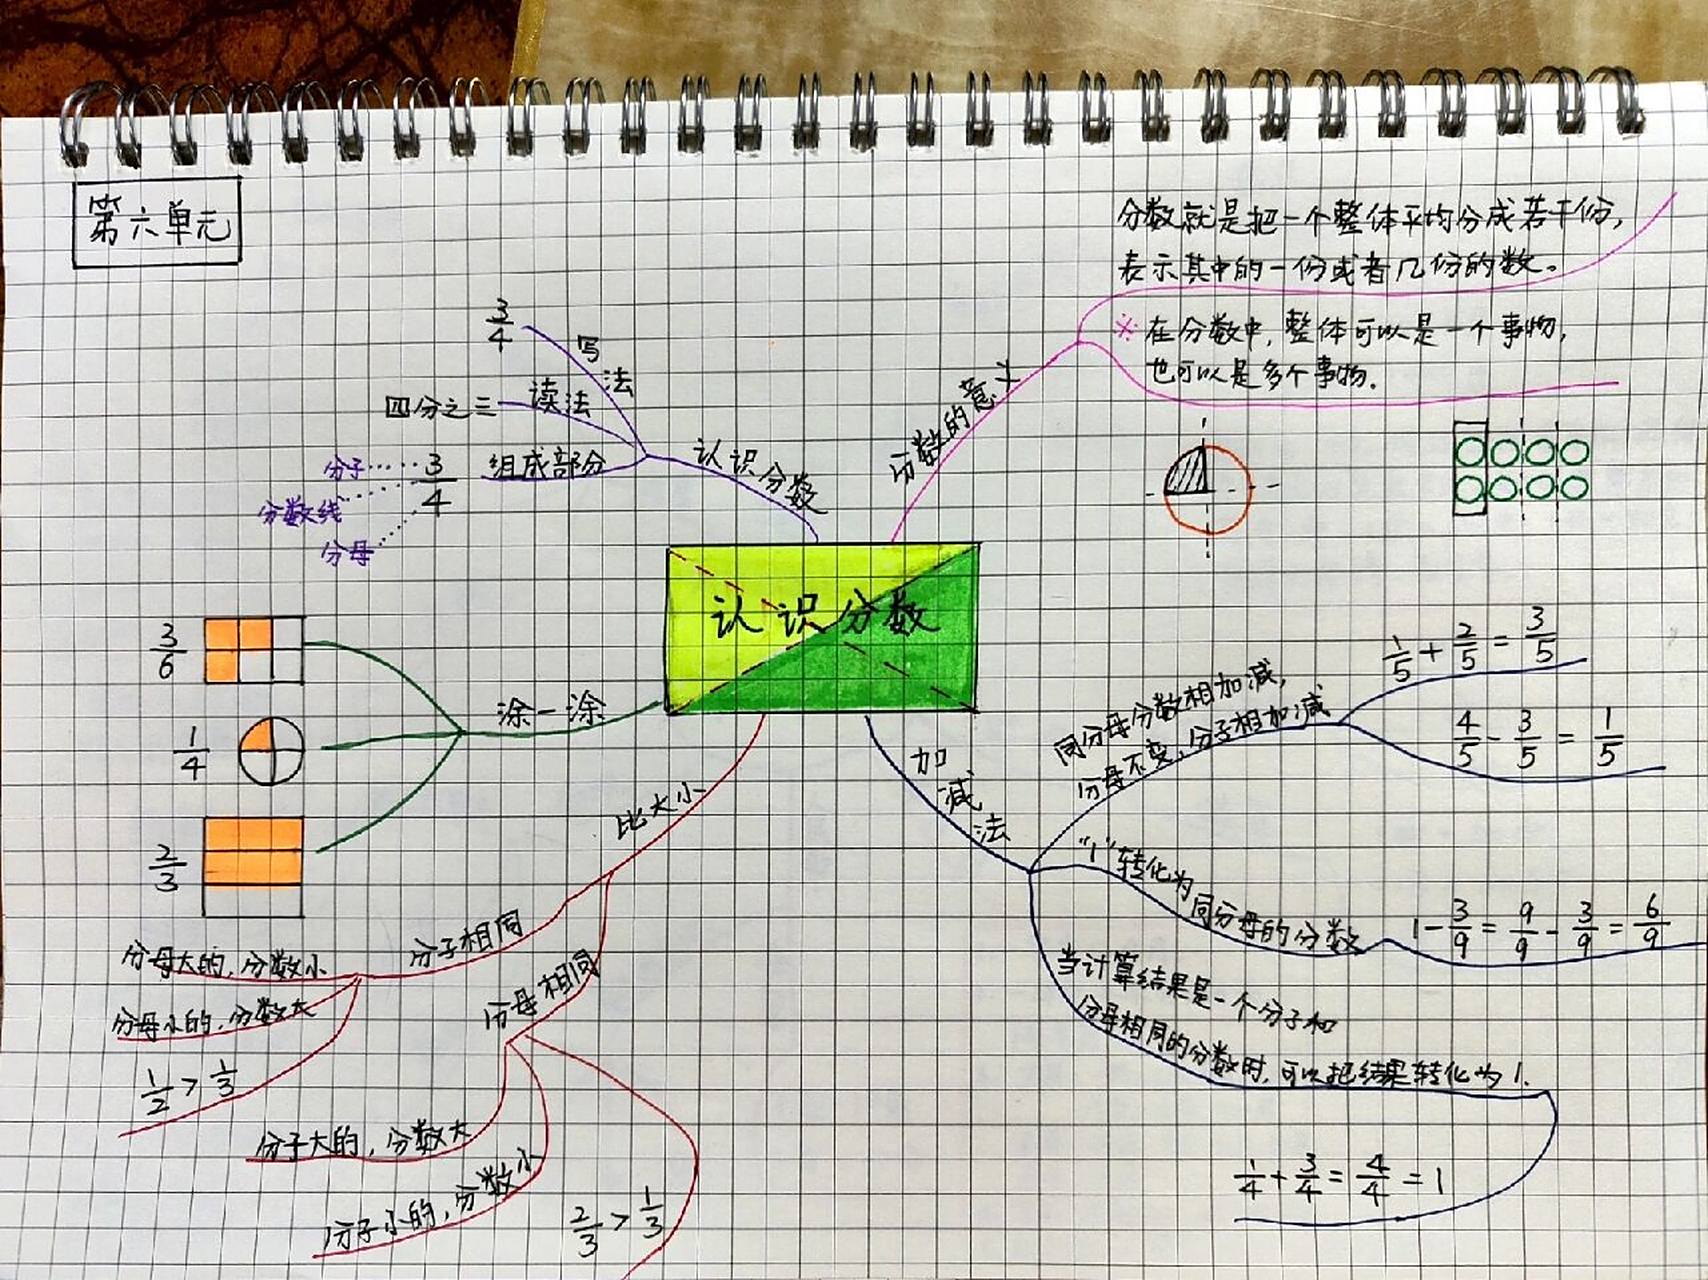 第六单元
分数就是把一个整体平均分成若干份,
表示其中的一份或者几份的数。
※在分数中,整体可以是一个事物,
也可以是多个事物.
分数的意义
认识分数
写法
3/4
读法
四分之三
组成部分
3/4
分子
分数线
分母
认识分数
涂一涂
3/6
1/4
2/3
比大小
分子相同
分母大的,分数小
分母小的,分数大
1/2 > 1/3
分母相同
分子大的,分数大
分子小的,分数小
2/3 > 1/3
加减法
同分母分数相加减,
分母不变,分子相加减
1/5 + 2/5 = 3/5
4/5 - 3/5 = 1/5
“1”转化为同分母的分数
1 - 3/9 = 9/9 - 3/9 = 6/9
当计算结果是一个分子和
分母相同的分数时,可以把结果转化为1.
1/4 + 3/4 = 4/4 = 1